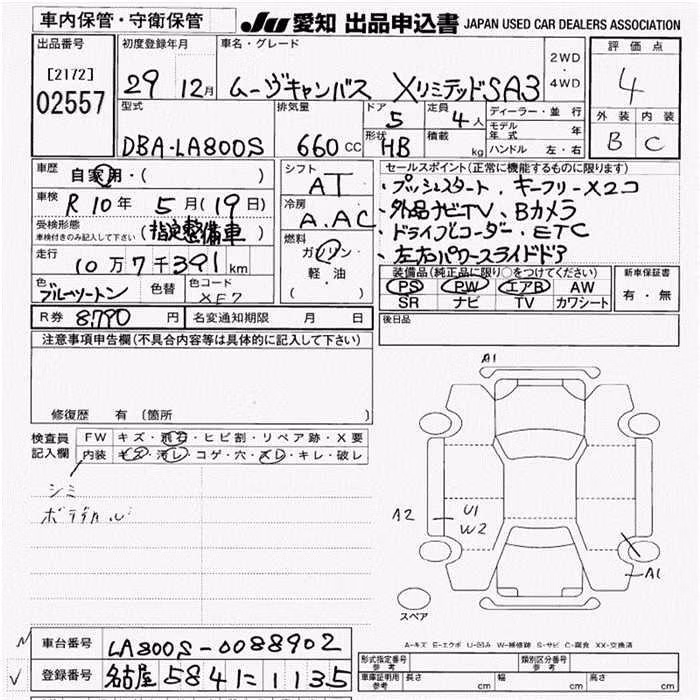 車内保管・守衛保管
JU 愛知 出品申込書 JAPAN USED CAR DEALERS ASSOCIATION
出品番号
[2172]
02557
初度登録年月
29 12月
車名・グレード
ムーヴキャンバス XリミテッドSA3
2WD
・
4WD
評価点
4
外装 内装
B C
型式
DBA-LA800S
排気量
660 CC
ドア
5
定員
4人
形状
HB
積載
kg
ディーラー・並行
モデル年式 年
ハンドル 左・右
車歴
自家用・( )
車検
R10年 5月(19日)
受検形態
車検付きのみ記入して下さい (指定整備車)
走行
10万7千391km
色
ブルーツートン
色替
色コード
XE7
シフト
AT
冷房
A.AC
燃料
ガソリン
・
軽油
( )
セールスポイント(正常に機能するものに限ります)
・プッシュスタート・キーフリーX2コ
・外品ナビTV、Bカメラ
・ドライブレコーダー・ETC
・左右パワースライドドア
装備品(純正品に限り○をつけてください)
PS PW エアB AW
SR ナビ TV カワシート
新車保証書
有・無
R券 8,790円
名変通知期限 月 日
後日品
注意事項申告欄(不具合内容等は具体的に記入して下さい)
修復歴 有 〔箇所 〕
検査員記入欄
FW キズ・飛石・ヒビ割・リペア跡・X要
内装 キズ・汚レ・コゲ・穴・スレ・キレ・破レ
シミ
A1
A2
U1
W2
A1
スペア
A-キズ E-エクボ U-凹み W-補修跡 S-サビ C-腐食 XX-交換済
車台番号
LA800S-0088902
登録番号
名古屋584に1135
形式指定番号
参考
類別区分番号
参考
車庫証明用
参考
長さ cm 幅 cm 高さ cm